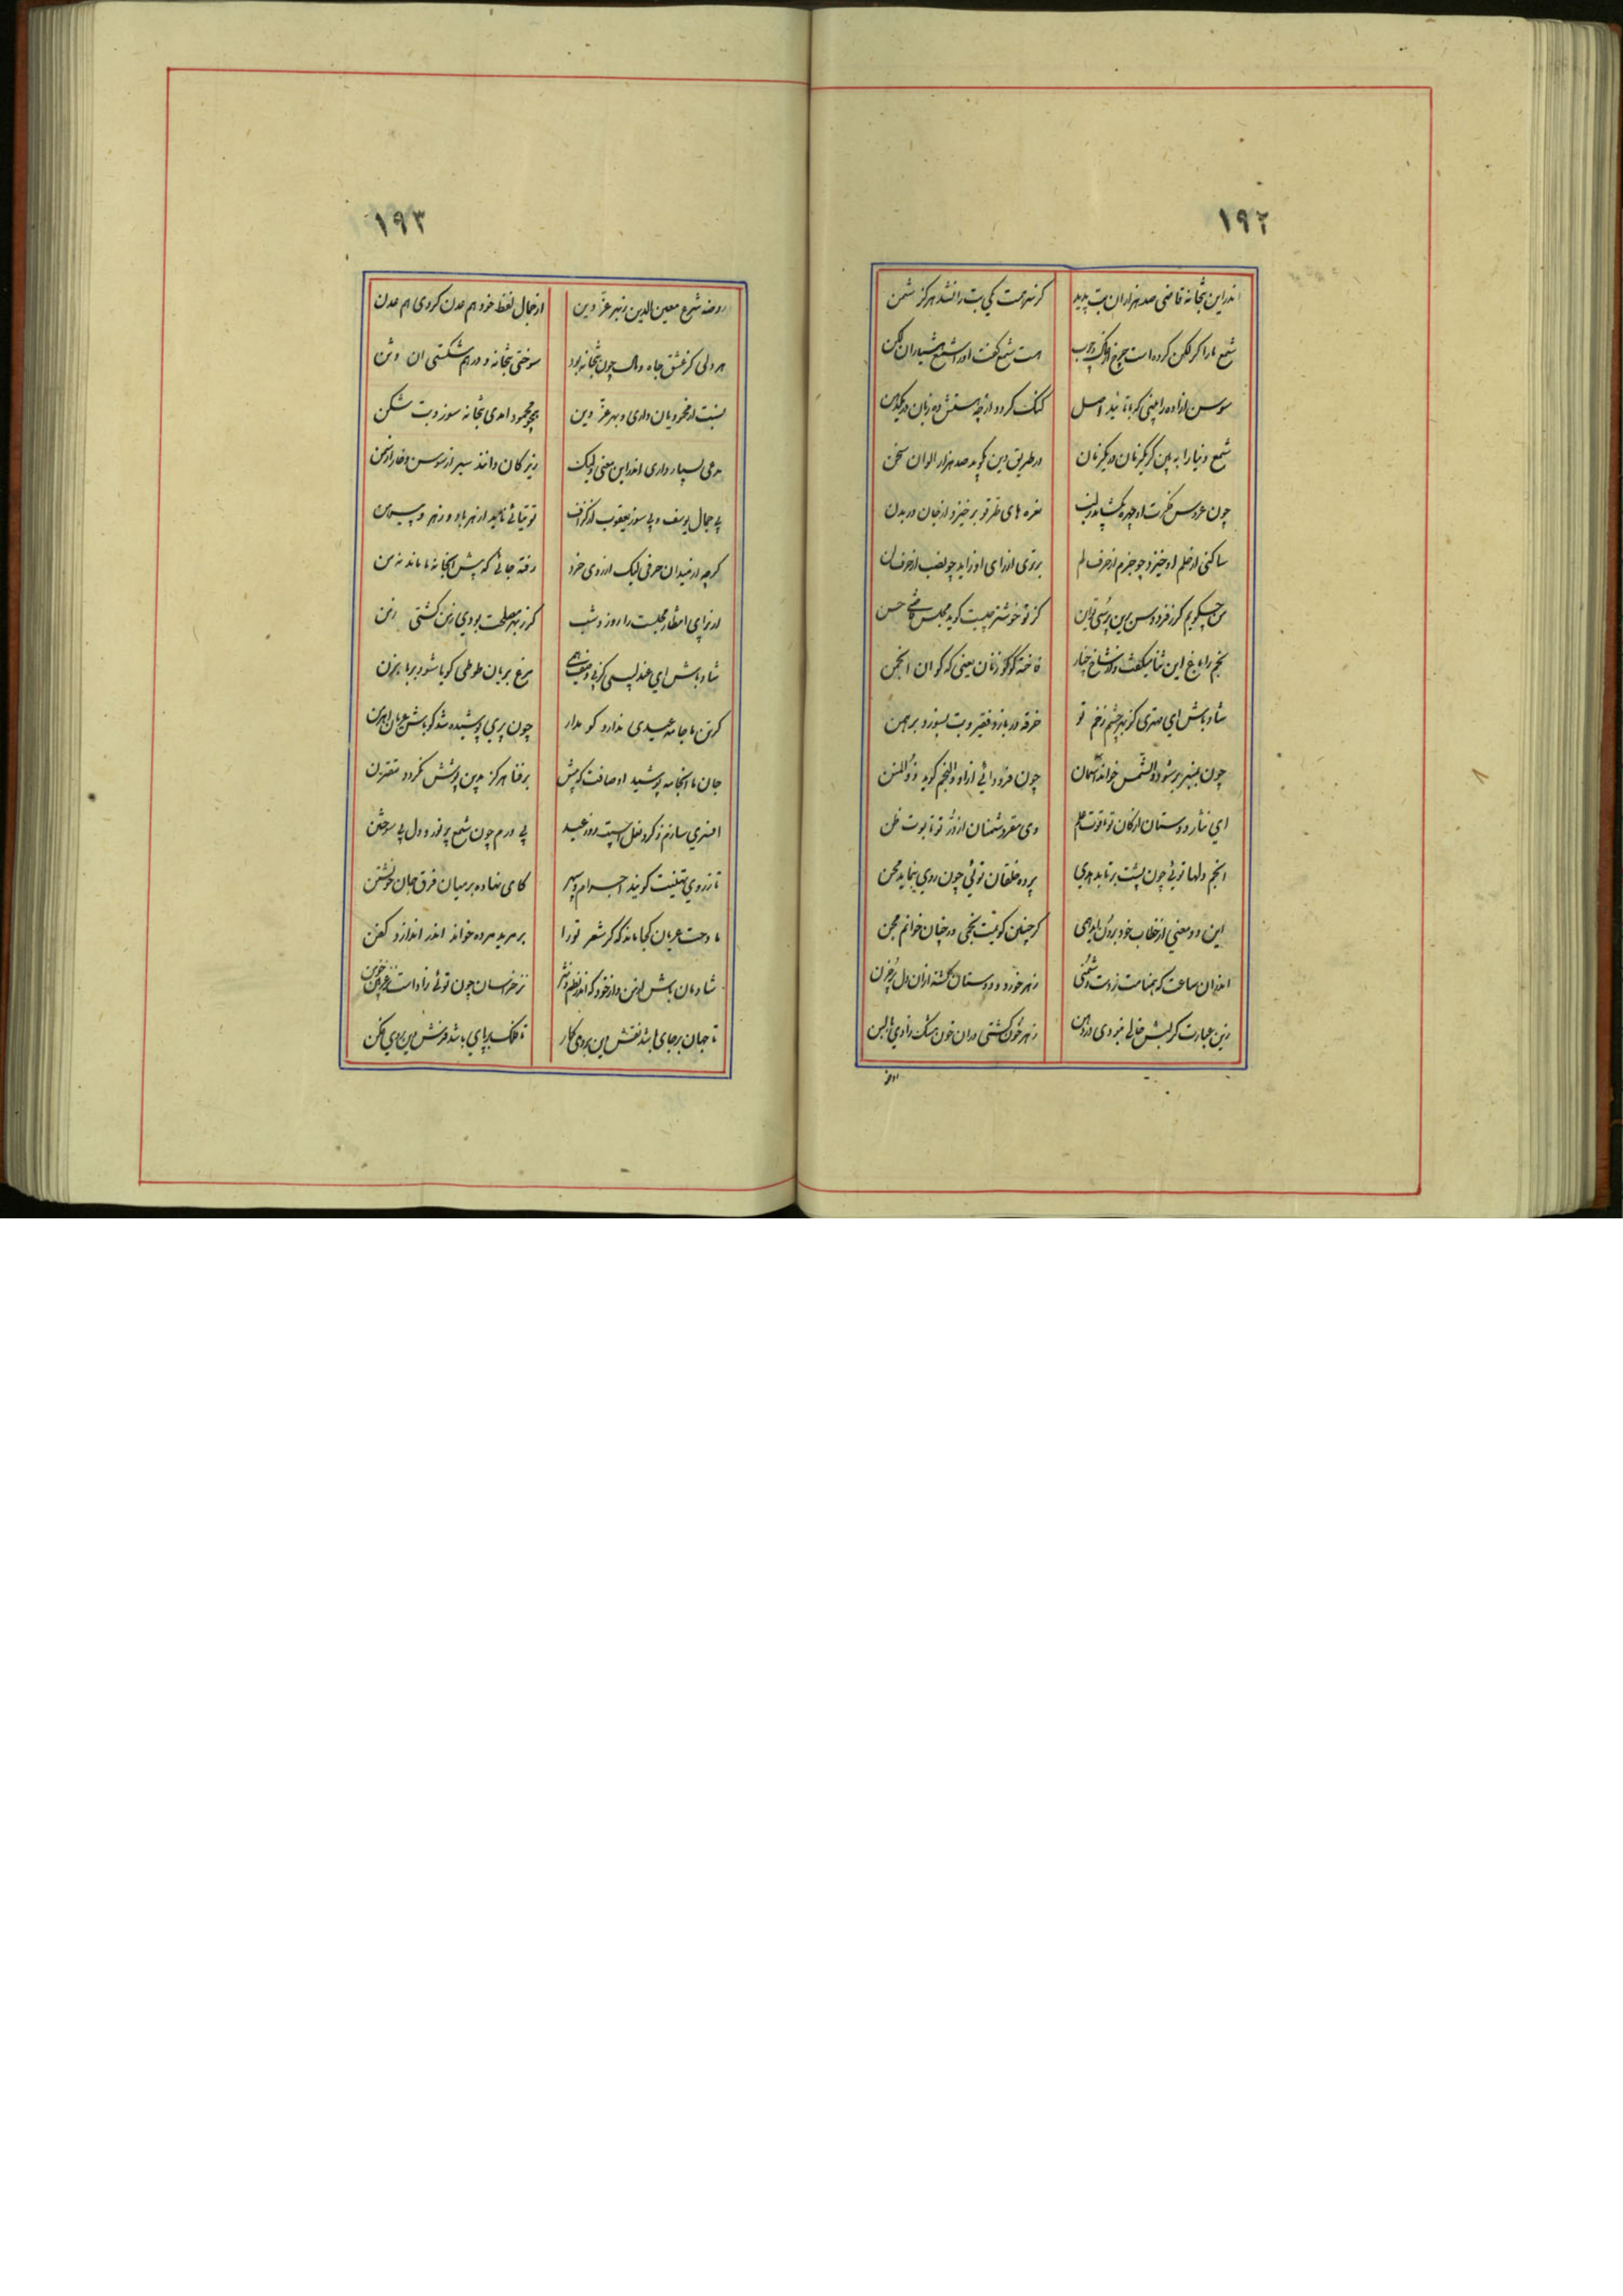 ۱۹۲
اندراین بتخانه قاضی صد هزاران بت پدید
کز نهیبت یکی بت را نشد هرگز شمن
شمع ما را گر لگن کرده است چرخ
هست شمع
سوسن ازاده را بینی که
گنگ گردد از چه هستش ده زبان در یکدهن
شمع دنیا را به بین کز یکزبان در یکزمان
در طریق دین بگوید صد هزار الوان سخن
چون عروس فکرت او چهره بگشاید ز لب
نعره های طرقو برخیزد از جان در بدن
ساکنی از حلم او خیزد چو جزم از حرف لم
برتری از رای او زاید چو نصب از حرف لن
من چگویم کز فردوس برین پرسی توان
کز تو خوشتر چیست گوید مجلس قاضی حسن
نجم را باغ این ثنا میگفت و از شاخ چنار
فاخته کوکو زنان یعنی که کو ان انجمن
شاد باش ای مهتری کز بهر چشم زخم تو
خرقه دربازد فقیر و بت بسوزد برهمن
چون بمنبر بر شود والشمس خواند آسمان
چون فرود ائی ازاو والنجم گوید ذوالمنن
ای نثار دوستان ارکان تو یاقوت علم
وی مقر دشمنان از دژ تو تابوت ظن
انجم دلها توئی چون پشت برتابد بدی
پرده خلقان توئی چون روی بنماید محن
این دو معنی از خطاب خود برون
گر چنین گویمت نجمی ور چنان خوانم مجن
اندران ساعت که همنامت ز دست دشمنی
زهر خورد و دوستان گشته ازان دل پر حزن
زین عبارت گر لبش خالی نبودی در دهن
زهر خون گشتی دران خون همنشک زادی
روضه
۱۹۳
روضه شرع معین الدین ز بهر عز دین
از جمال لفظ خود هم عدن کردی هم عدن
هر دلی کز عشق جاه و مال چون بتخانه بود
سوختی بتخانه و درهم شکستی ان وثن
نسبت از محمودیان داری و بهر عز دین
همچو محمود امدی بتخانه سوز و بت شکن
مدعی بسیار داری اندراین معنی ولیک
زیرکان دانند سیر از سوسن و خار از سمن
بی جمال یوسف و بی سوز یعقوب از گزاف
توتیائی ناید از هر باد و ز هر پیرهن
گرچه از میدان حرفی لیک از روی خرد
رفته جائی که پیش انجا نه ما ماند نه من
از برای انتظار مجلست را روز و شب
گرز بهر مصلحت بودی زمن گشتی زمن
شاد باش ای عندلیبی کز پی وصفت همی
مرغ بریان طوطی گویا شود بر بابزن
گر تن ما جامه عیدی ندارد گو مدار
چون پری پوشیده شد گو باش عریان اهرمن
جان ما را جامه پوشید اوصافت که پیش
بر قفا هرگز بدین پوشش نگردد مقترن
افسری سازم ز گرد نعل اسبت روز عید
پی درم چون شمع پر نور و دل پی سوختن
تا ز روی تهنیت گویند اجرام سپهر
کامی نهاده بر میان فرق جان خویشتن
مادحت عریان کجا ماند که گر شعر تو را
بر مرید مرده خواند اندر اندازد کفن
شادمان باش از من و از خود که اندر نظم و نثر
نز خراسان چون توئی زاد است نز غزنین چو من
تا جهان بر جای باشد نقش این بر روی کار
تا فلک بر پای باشد فرش این بر روی افکن